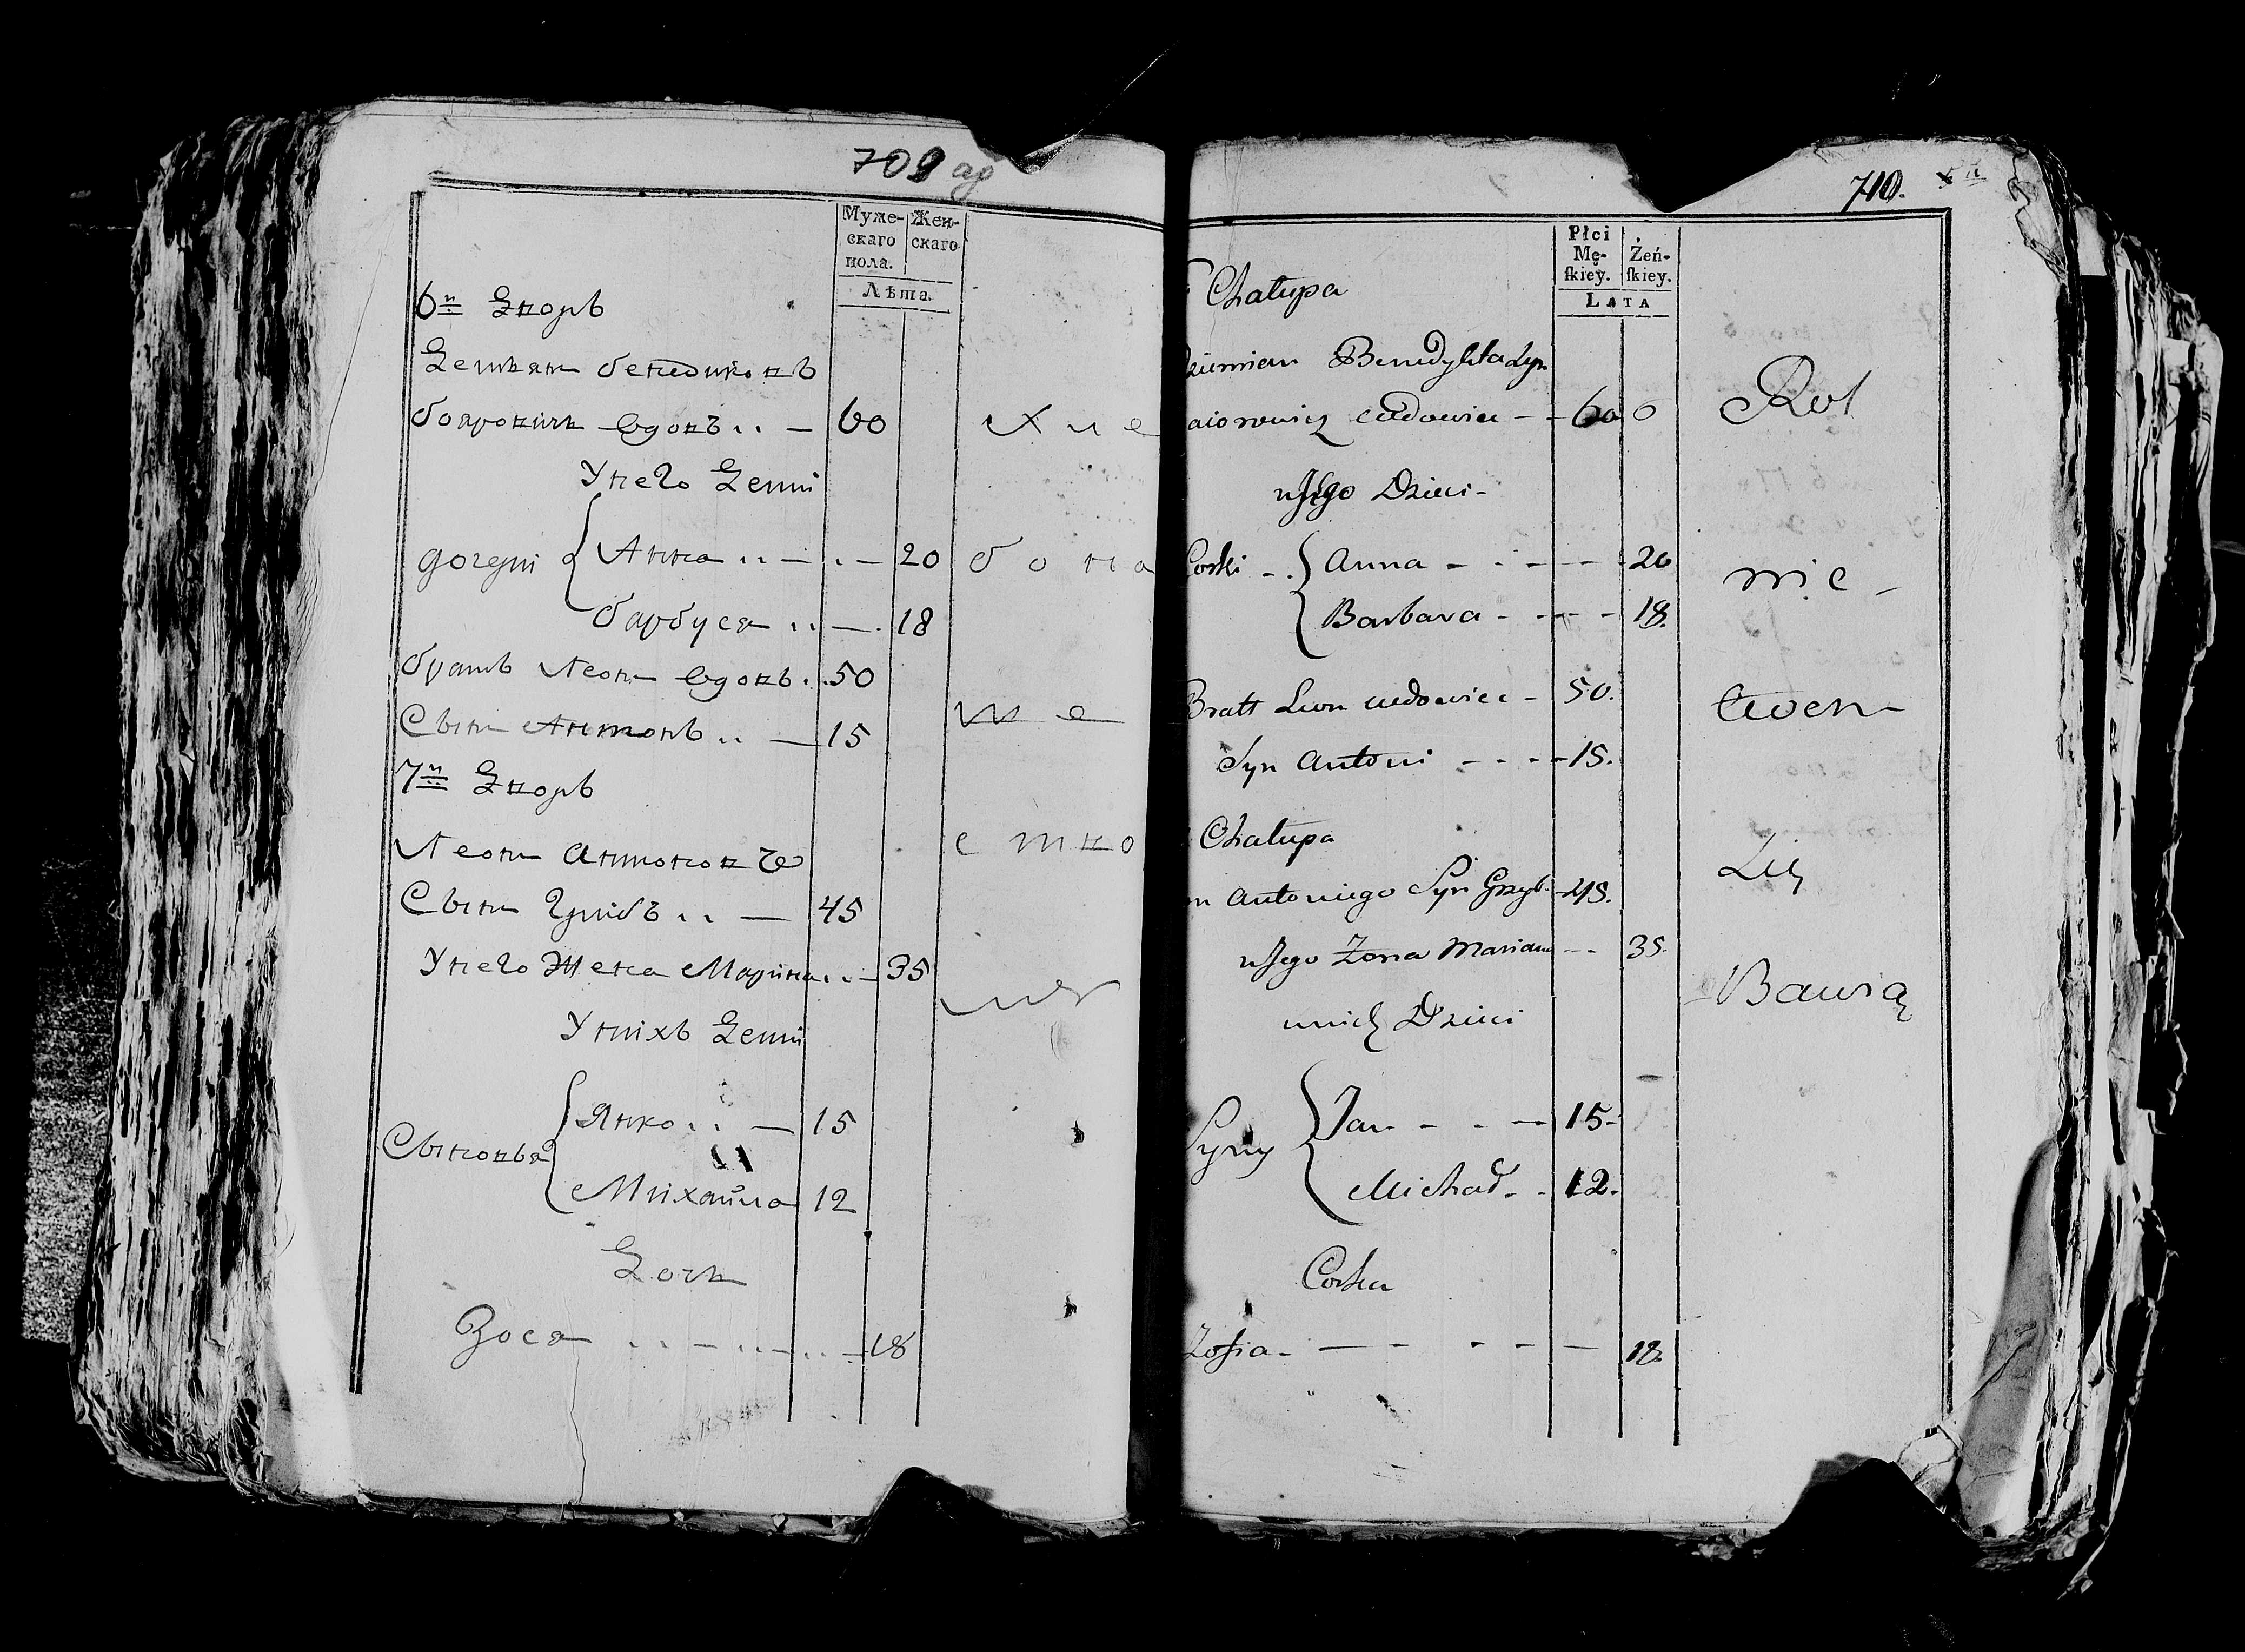 709
Муже-
скаго
пола.
Жен-
скаго
Лѣта.
6й Дворъ
Демьян бенедиковъ
боярович вдовъ 60
Унего Дети
дочери Анна 20
барбуся 18
братъ Леон вдовъ 50
Сын Антонъ 15
7й Дворъ
Леон антонов
Сын Грибъ 45
Унего Жена Марина 35
Унихъ Дети
Сыновья Янко 15
Михайла 12
Дочь
Зося 18
хле
бопа
ше
ство
710.
Płci
Mę-
skiey.
Żeń-
skiey.
LATA
Chałupa
Benedykta Syn
wdowiec 60
u Jego Dzieci
Corki Anna 20
Barbara 18.
Bratt Leon wdowiec 50.
Syn Antoni 15.
Chałupa
Antoniego Syn Grzyb 45.
u Jego Żona Mariana 35.
unich Dzieci
Syny Jan 15
Michał 12.
Corka
Zofia 18.
Rol
nic
twem
Się
Bawią